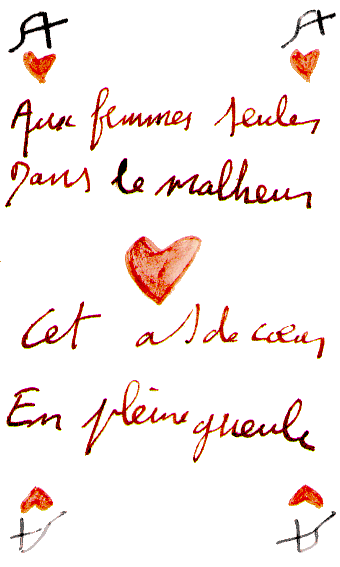 A A
Aux femmes seules
Dans le malheur
Cet as de cœur
En pleine gueule
A A